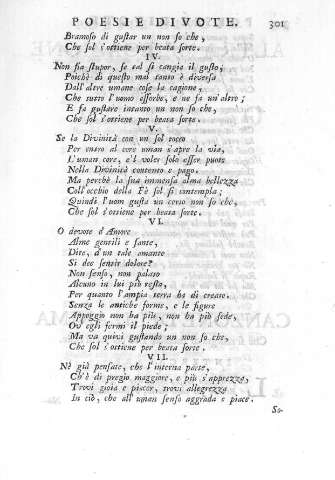 POESIE DIVOTE. 301
Bramoso di gustar un non so che,
Che sol s'ottiene per beata sorte.
IV.
Non fia stupor, se tal si cangia il gusto,
Poichè di questo mai tanto è diversa
Dall'altre umane cose la cagione,
Che tutto l'uomo assorbe, e ne fa un'altro;
E fa gustare intanto un non so che,
Che sol s'ottiene per beata sorte.
V.
Se la Divinità con un sol tocco
Per entro al core uman s'apre la via,
L'uman core, e'l voler solo esser puote
Nella Divinità contento e pago.
Ma perchè la sua immensa alma bellezza
Coll'occhio della Fè sol si contempla;
Quindi l'uom gusta un certo non so che,
Che sol s'ottiene per beata sorte.
VI.
O devote d'Amore
Alme gentili e sante,
Dite, d'un tale amante
Si dee sentir dolore?
Non senso, non palato
Alcuno in lui più resta,
Per quanto l'ampia terra ha di create.
Senza le antiche forme, e le figure
Appoggio non ha più, non ha più sede,
Ov'egli fermi il piede;
Ma va quivi gustando un non so che,
Che sol s'ottiene per beata sorte.
VII.
Nè già pensate, che l'interna parte,
Ch'è di pregio maggiore, e più s'apprezza,
Trovi gioia e piacer, trovi allegrezza
In ciò, che all'uman senso aggrada e piace.
So-